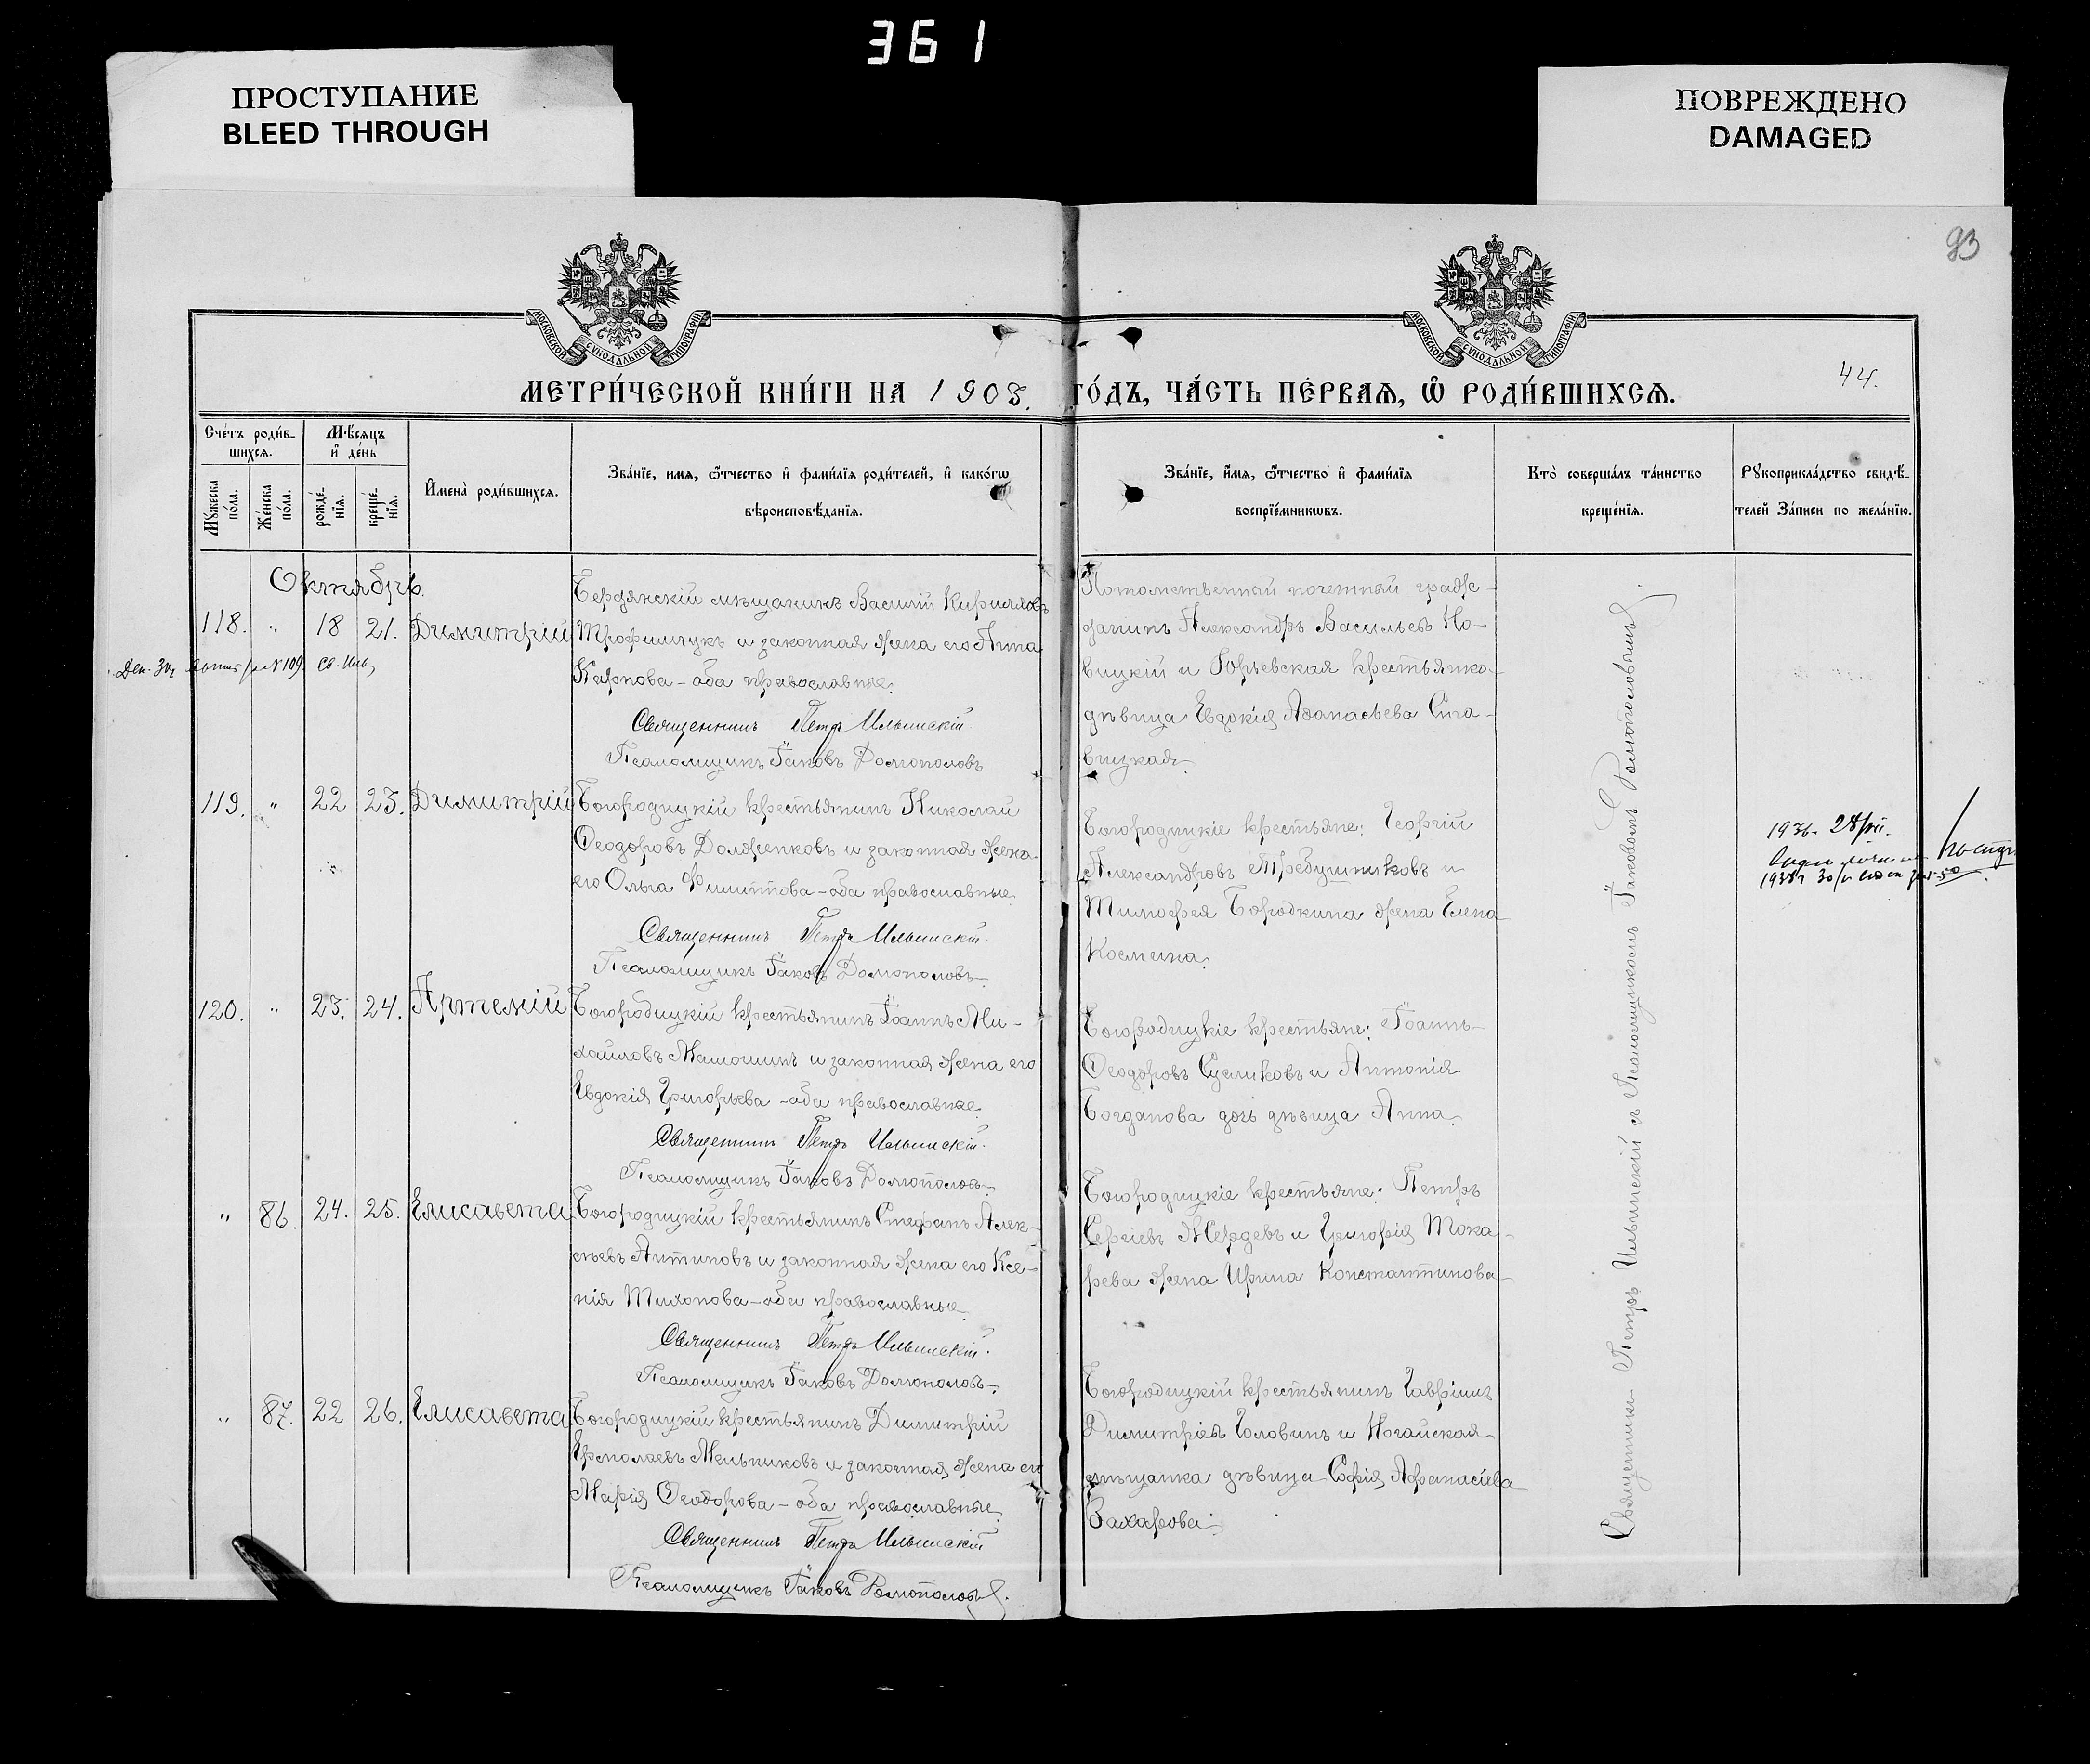 361
ПРОСТУПАНИЕ
BLEED THROUGH
ПОВРЕЖДЕНО
DAMAGED
93
МОСКОВСКОЙ СѴНОДАЛЬНОЙ ТИПОГРАФІИ
МОСКОВСКОЙ СѴНОДАЛЬНОЙ ТИПОГРАФІИ
44.
МЕТРИ́ЧЕСКОЙ КНИ́ГИ НА 1903. ГО́ДЪ, ЧА́СТЬ ПЕ́РВАЯ, Ѽ РОДИ́ВШИХСЯ.
Сче́тъ роди́в-
шихся.
Мѣ́сяцъ
и҆ де́нь
Мꙋжеска по́ла.
Же́нска по́ла.
рожде́-
нїя.
креще́-
нїя.
И҆мена̀ роди́вшихся.
Зва́нїе, имя, ѻ҆́тчество и҆ фами́лїя роди́телей, и҆ како́гѡ
вѣроисповѣ́данїя.
Зва́нїе, и҆́мя, ѻ҆́тчество и҆ фами́лїя
воспрїе́мникѡвъ.
Кто̀ соверша́лъ та́инство
креще́нїя.
Рꙋкоприкла́дство свидѣ́-
телей За́писи по жела́нїю.
Октябрь.
118. " 18 21. Димитрій
Бердянскій мѣщанинъ Василій Кирилловъ
Трофимчукъ и законная жена его Анна
Карпова – оба православные.
Священникъ Петръ Ильинскій
Псаломщикъ Іаковъ
Потомственный почетный граж-
данинъ Александръ Васильевъ Но-
вицкій и Юрьевская крестьянка
дѣвица Евдокія Аѳанасьева Сига-
вицкая.
119. " 22 23. Димитрій
Богородицкій крестьянинъ Николай
Ѳеодоровъ Долженковъ и законная жена
его Ольга Филиппова – оба православные.
Священникъ Петръ Ильинскій
Псаломщикъ Іаковъ
Богородицкіе крестьяне: Георгій
Александровъ Требушниковъ и
Тимоѳея Бородкина жена Елена
Космина.
120. " 23. 24. Артемій
Богородицкій крестьянинъ Іоаннъ Ми-
хайловъ Мамошинъ и законная жена его
Евдокія Григорьева – оба православные.
Священникъ Петръ Ильинскій
Псаломщикъ Іаковъ
Богородицкіе крестьяне: Іоаннъ
Ѳеодоровъ Сусликовъ и Антонія
Богданова дочь дѣвица Анна.
" 86. 24. 25. Елисавета
Богородицкій крестьянинъ Стефанъ Алек-
сѣевъ Антиповъ и законная жена его Ксе-
нія Тихонова – оба православные.
Священникъ Петръ Ильинскій
Псаломщикъ Іаковъ
Богородицкіе крестьяне: Петръ
Сергіевъ Жердевъ и Григорія Тока-
рева жена Ирина Константинова
" 87. 22 26. Елисавета
Богородицкій крестьянинъ Димитрій
Ермолаевъ Мельниковъ и законная жена его
Марія Ѳеодорова – оба православные.
Священникъ Петръ Ильинскій
Псаломщикъ Іаковъ
Богородицкій крестьянинъ Гавріилъ
Димитріевъ Головинъ и Ногайская
мѣщанка дѣвица Софія Афанасіева
Захарова.
Священникъ Петръ Ильинскій съ Псаломщикомъ Іаковомъ